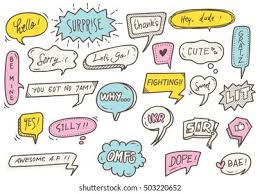 hello!
SURPRISE
thanks
Hey, dude!
GRATZ
BE MINE
Sorry :(
Let's Go!
CUTE
YOU GOT 90 JAM!
WHY...
FIGHTING!!
Sweet
LIT
YES!
SILLY!!
SIR
AWESOME
OMFG
DOPE!
BAE!
shutterstock.com · 503220652